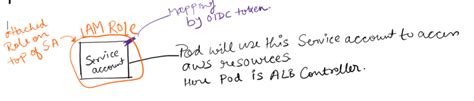 Attached
Role on
top of SA
IAM Role
Mapping
by OIDC token.
Service
account
Pod will use this Service account to access
aws resources.
Here Pod is ALB Controller.